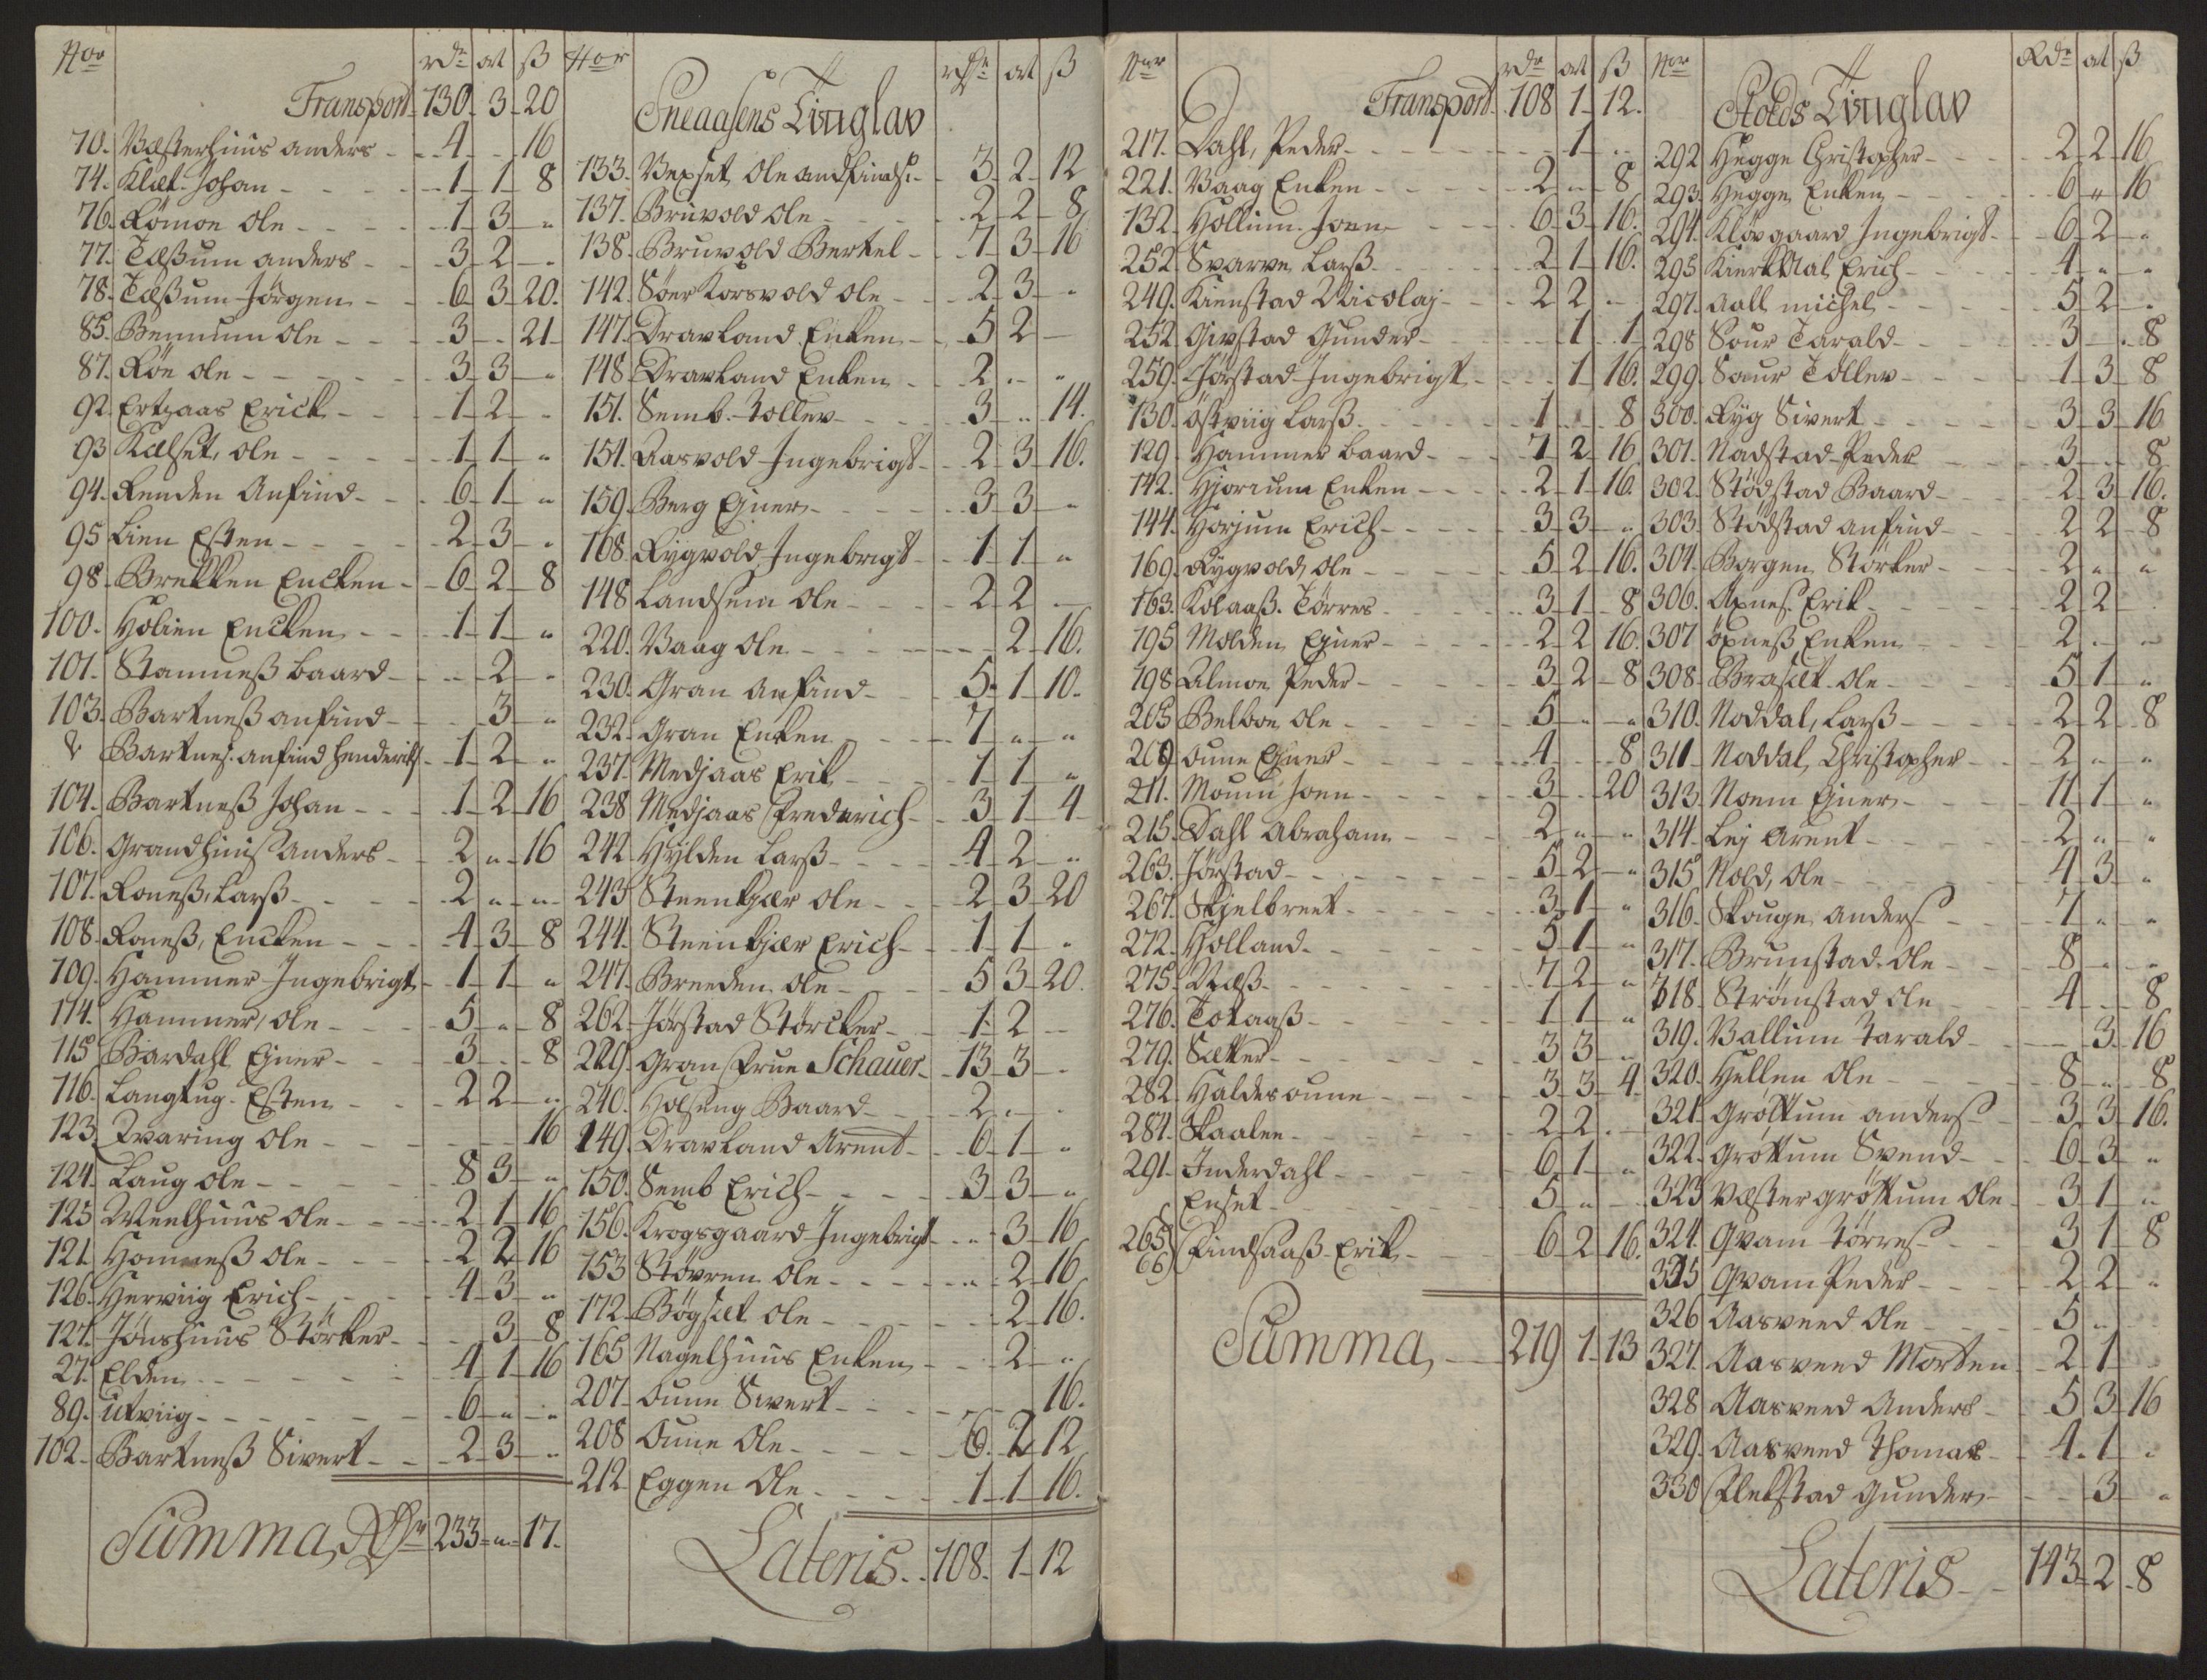 Nor rdr at ß
Transport 130 3 20
70. Væsterhuus anders 4 16
74. Klæt Johan 1 1 8
76. Römoe Ole 1 3 "
77. Tæßum anders 3 2 "
78. Tæßum Jörgen 6 3 20.
85. Bennum Ole 3 21
87. Röe Ole 3 3 "
92. Ertzaas Erick 1 2 "
93 Kælset, Ole 1 1 "
94. Renden Anfind 6 1 "
95 Lien Esten 2 3 "
98. Brekken Encken 6 2 8
100. Holien Encken 1 1 "
101. Stamneß Baard 2 "
103. Bartneß anfind 3 "
& Bartnes. anfind Henderichs 1 2 "
104. Bartneß Johan 1 2 16
106. Grandhuus Anders 2 " 16
107. Roneß, Larß 2 " "
108. Roneß, Encken 4 3 8
109. Hammer Ingebrigt 1 1 "
114. Hammer, Ole 5 " 8
115 Bardahl Ejner 3 8
116. Langtug Esten 2 2 "
123. Qvaring Ole 16
124. Laug Ole 8 3 "
125 Weelhuus Ole 2 1 16
121. Homneß Ole 2 2 16
126. Herviig Erich 4 3 "
127. Jönshuus Störker 3 8
27. Elden 4 1 16
89. Utviig 6 " "
102. Bartneß Sivert 2 3 "
Summa Rdr 233 " 17.
Nor rdr at ß
Sneaasens Tinglav
133. Vexset, Ole andfinds: 3 2 12
137. Bruvold Ole 2 2 8
138. Bruvold Bertel 7 3 16
142. Söer Korsvold Ole 2 3 "
147. Dravland Enken 5 2
148. Dravland Enken 2 " "
151. Semb Tollev 3 " 14.
154. Aasvold Ingebrigt 2 3 16.
159. Berg Ejner 3 3 "
168. Rygvold Ingebrigt 1 1 "
148 Landsem Ole 2 2
220. Vaag Ole 2 16.
230. Gran Anfind 5 1 10.
232. Gran Enken 7 " "
237. Medjaas Erik 1 1 "
238 Medjaas Frederich 3 1 4
242 Hylden Larß 4 2 "
243 Steenkjær Ole 2 3 20
244. Steenkjær Erich 1 1 "
247. Breeden Ole 5 3 20.
262 Jörstad Störcker 1 2
229. Gran Frue Schauer 13 3
240. Holseng Baard 2
149. Dravland Arent 6 1 "
150. Semb Erich 3 3 "
156. Krogsgaard Ingebrigt 3 16
153 Stövren Ole 2 16
172 Bögset Ole 2 16.
165 Nagelhuus Enken 2 "
207 Oune Sivert 16.
208 Oune Ole 6. 2 12
212 Eggen Ole 1 1 16.
Lateris 108. 1 12
Nor rdr at ß
Transport 108 1 12.
217. Dahl, Peder 1
221. Vaag Enken 2 " 8
132. Hollum Joen 6 3 16.
252. Svarve Larß 2 1 16.
249. Kienstad Nicolaj 2 2
252. Givstad Gunder 1 1
259. Jörstad Ingebrigt 1 16.
130. östviig Larß 1 8
129. Hammer Baard 7 2 16
142. Hjorium Enken 2 1 16.
144. Horjum Erich 3 3 "
169. Rygvold, Ole 5 2 16.
163. Kolaaß. Törres 3 1 8
195 Molden, Ejner 2 2 16.
198 Almoe Peder 3 2 8
205 Belboe Ole 5 "
209 Oune Ejner 4 8
211. Moum Joen 3 20
215. Dahl Abraham 2 " "
263. Jörstad 5 2 "
267. Skjelbreet 3 1 "
272. Holland 5 1 "
275. Næß 7 2 "
276. Tolaaß 1 1 "
279. Sætter 3 3 "
282. Haldes oune 3 3 4
284. Skaalen 2 2
291. Inderdahl 6 1 "
Enset 5 "
265 66 Findsaaß Erik 6 2 16.
Summa 219 1 13
Nor Rdr at ß
Stods Tinglav
292 Hegge Christopher 2 2 16
293. Hegge Enken 6 " 16
294. Klövgaard Ingebrigt 6 2 "
295 Kierkdal, Erich 4 " "
297. Aall michel 5 2 "
298 Sour Tarald 3 8
299. Sour Tollev 1 3 8
300. Ryg Sivert 3 3 16
301. Nadstad Peder 3 8
302. Stödstad Baard 2 3 16.
303. Stödstad anfind 2 2 8
304. Borgen Störker 2 " "
306. Axnes Erik 2 2
307 öxneß Enken 2 "
308. Braset Ole 5 1 "
310. Noddal, Larß 2 2 8
311 Noddal, Christopher 2 " "
313. Noem Ejner 11 1 "
314. Lej Arent 2 " "
315 Nold, Ole 4 3 "
316. Skouge anders 7 " "
317. Brunstad Ole 8 " "
318. Strömstad Ole 4 8
319. Vallum Tarald 3 16
320. Hellen Ole 8 " 8
321. Gröttum anders 3 3 16.
322. Gröttum Svend 6 3 "
323 Væster gröttum Ole 3 1 "
324. Qvam Törres 3 1 8
325 Qvam Peder 2 2 "
326 Aasveed Ole 5 "
327. Aasveed Morten 2 1
328 Aasveed Anders 5 3 16
329. Aasveed Thomas 4 1 "
330 Flekstad Gunder 3 "
Lateris 143 2 8